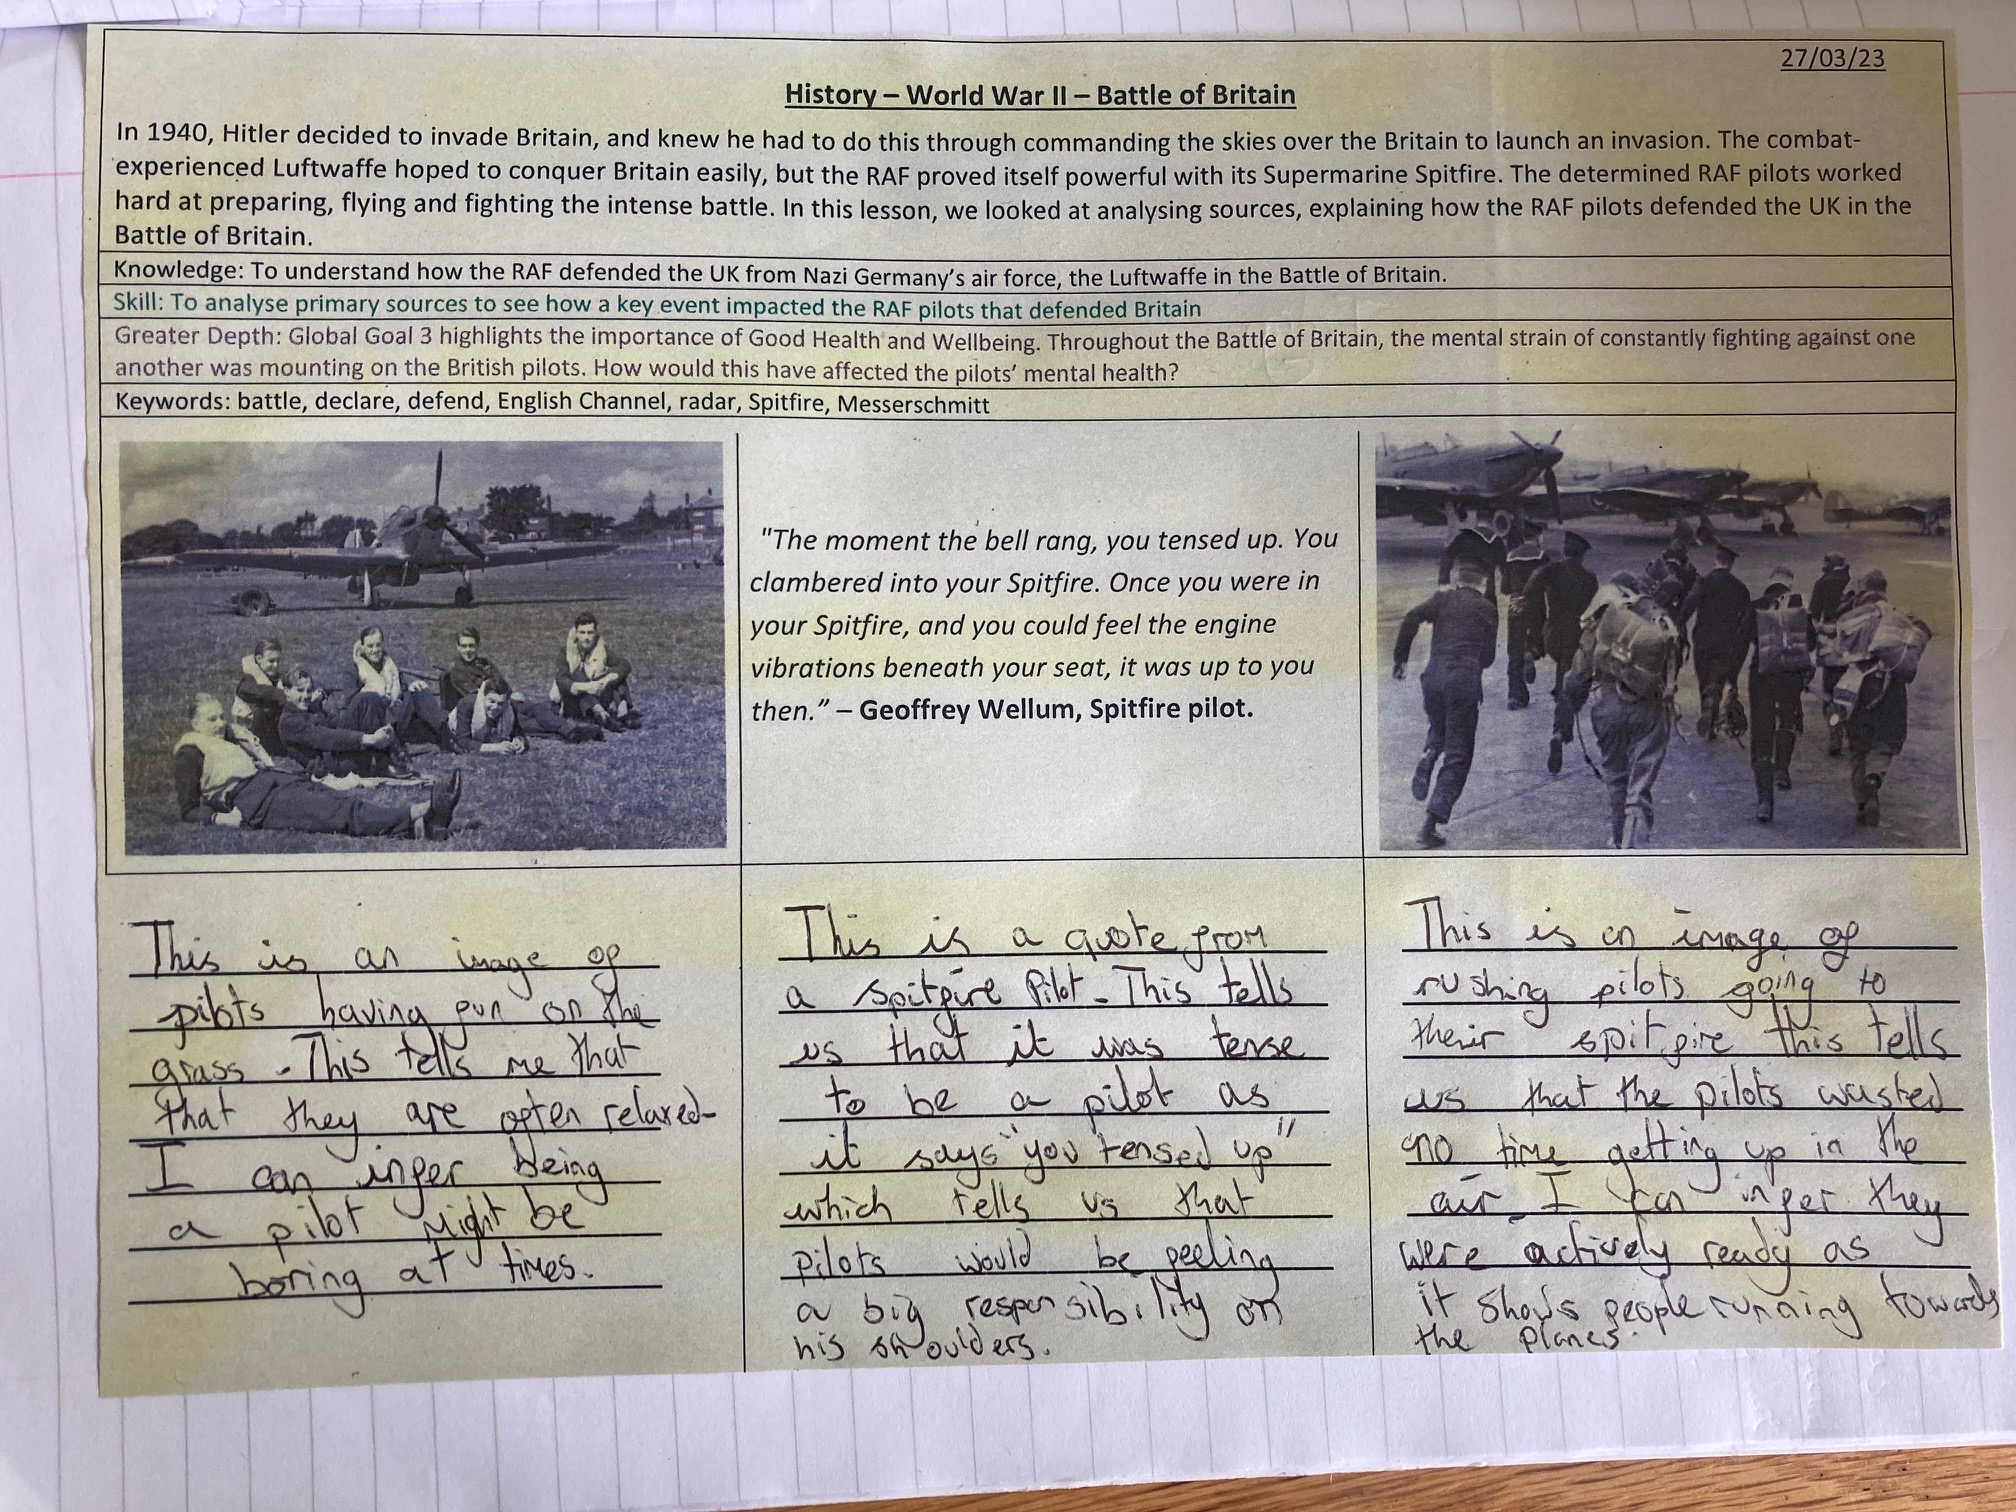 27/03/23
History – World War II – Battle of Britain
In 1940, Hitler decided to invade Britain, and knew he had to do this through commanding the skies over the Britain to launch an invasion. The combat-
experienced Luftwaffe hoped to conquer Britain easily, but the RAF proved itself powerful with its Supermarine Spitfire. The determined RAF pilots worked
hard at preparing, flying and fighting the intense battle. In this lesson, we looked at analysing sources, explaining how the RAF pilots defended the UK in the
Battle of Britain.
Knowledge: To understand how the RAF defended the UK from Nazi Germany's air force, the Luftwaffe in the Battle of Britain.
Skill: To analyse primary sources to see how a key event impacted the RAF pilots that defended Britain
Greater Depth: Global Goal 3 highlights the importance of Good Health and Wellbeing. Throughout the Battle of Britain, the mental strain of constantly fighting against one
another was mounting on the British pilots. How would this have affected the pilots' mental health?
Keywords: battle, declare, defend, English Channel, radar, Spitfire, Messerschmitt
"The moment the bell rang, you tensed up. You
clambered into your Spitfire. Once you were in
your Spitfire, and you could feel the engine
vibrations beneath your seat, it was up to you
then." – Geoffrey Wellum, Spitfire pilot.
This is an image of
pilots having fun on the
grass. This tells me that
that they are often relaxed.
I can infer being
a pilot might be
boring at times.
This is a quote from
a spitfire Pilot. This tells
us that it was tense
to be a pilot as
it says "you tensed up"
which tells us that
pilots would be feeling
a big responsibility on
his shoulders.
This is an image of
rushing pilots going to
their spitfire this tells
us that the pilots wasted
no time getting up in the
air. I can infer they
were actively ready as
it shows people running towards
the planes.